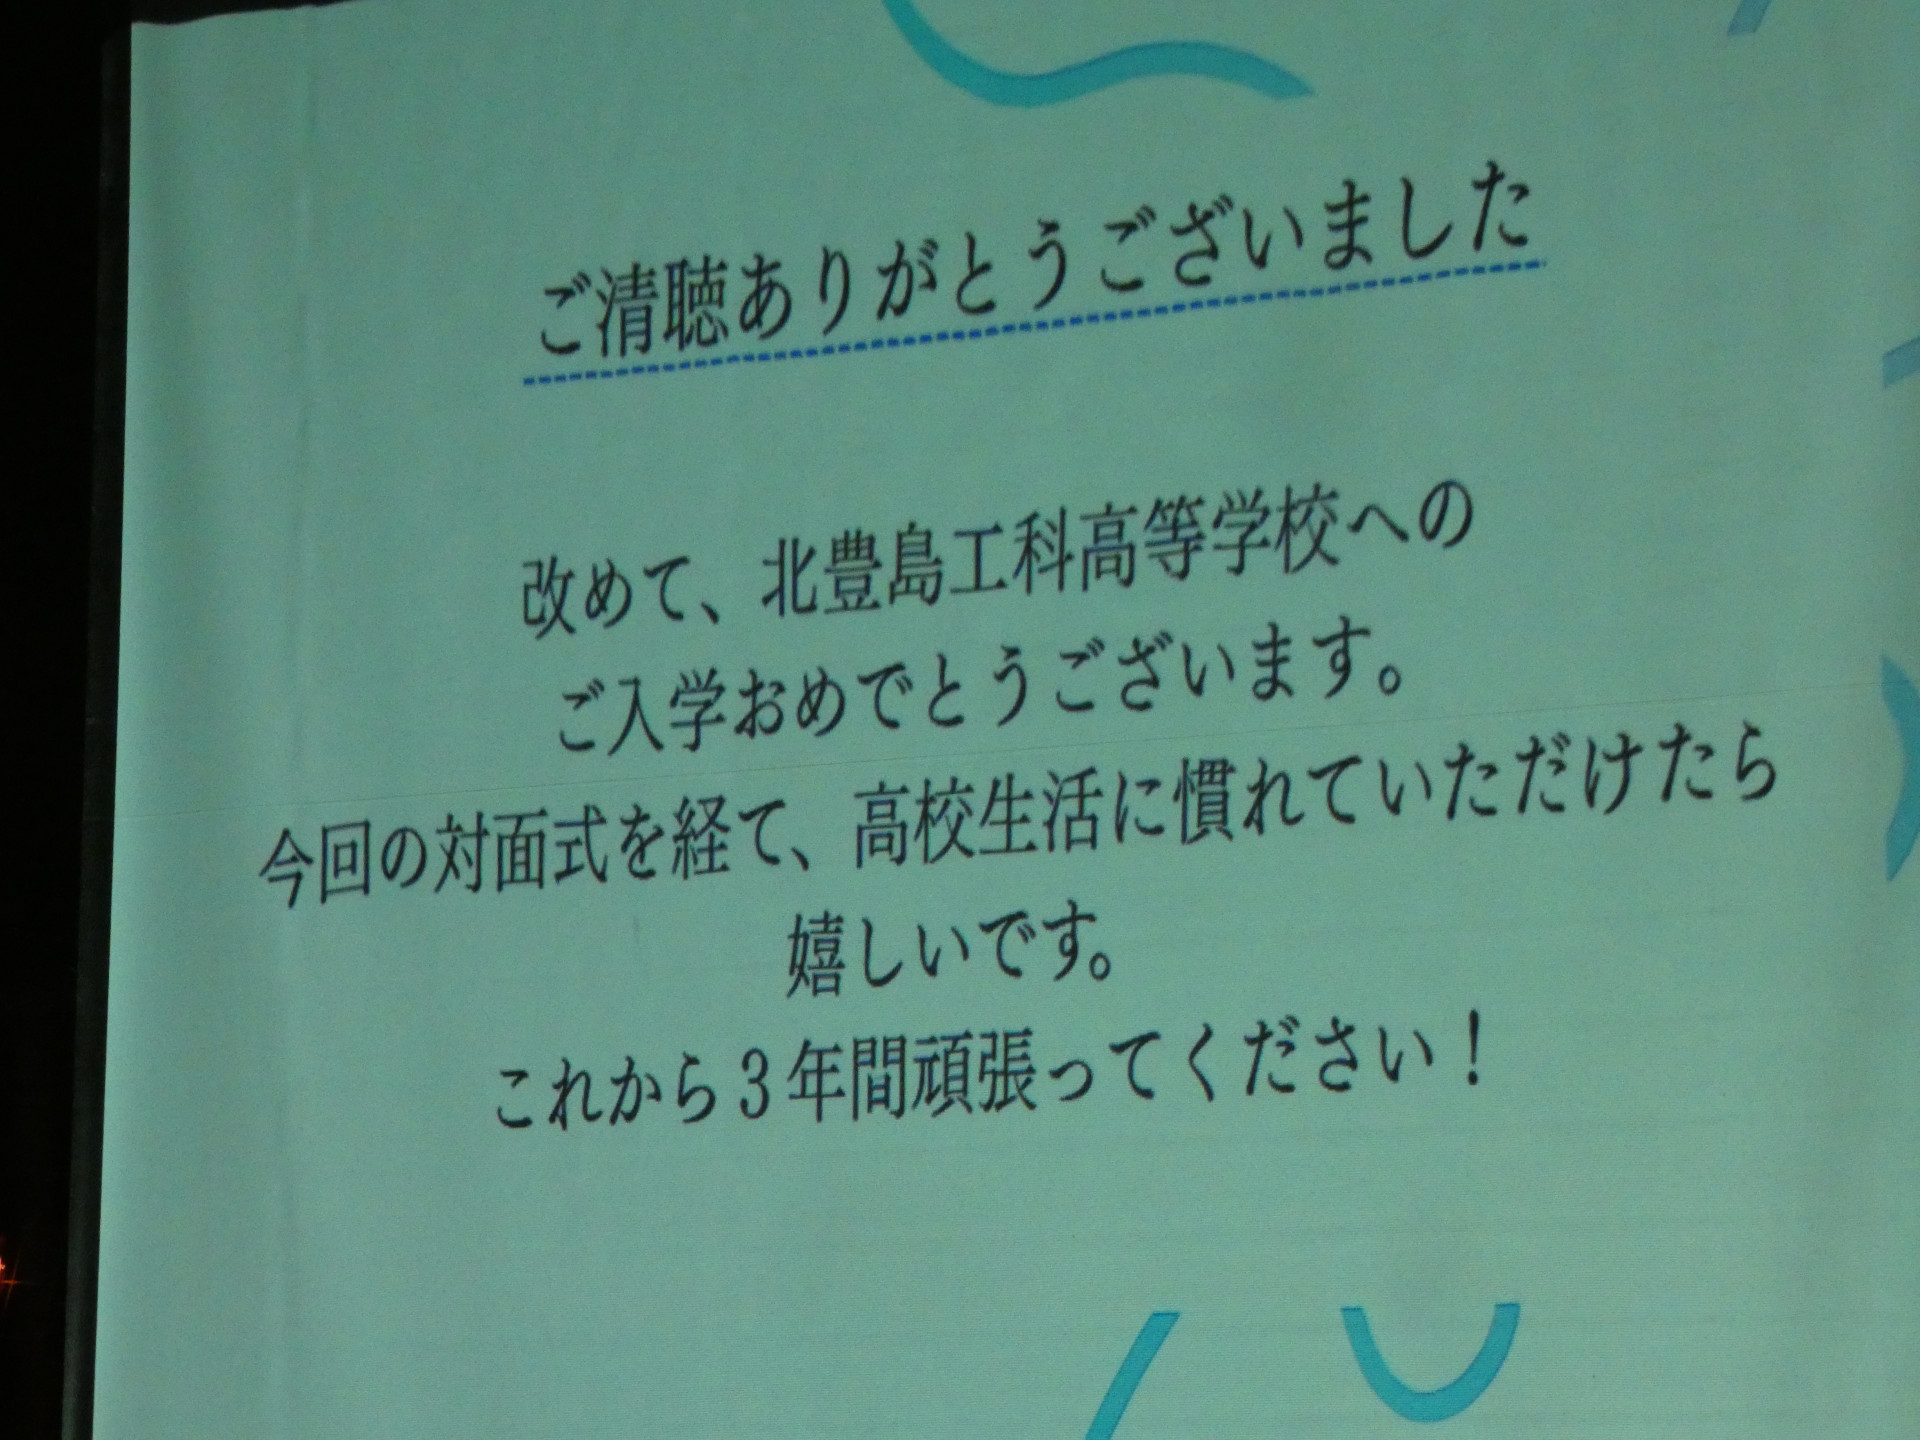 ご清聴ありがとうございました
改めて、北豊島工科高等学校への
ご入学おめでとうございます。
今回の対面式を経て、高校生活に慣れていただけたら
嬉しいです。
これから３年間頑張ってください！